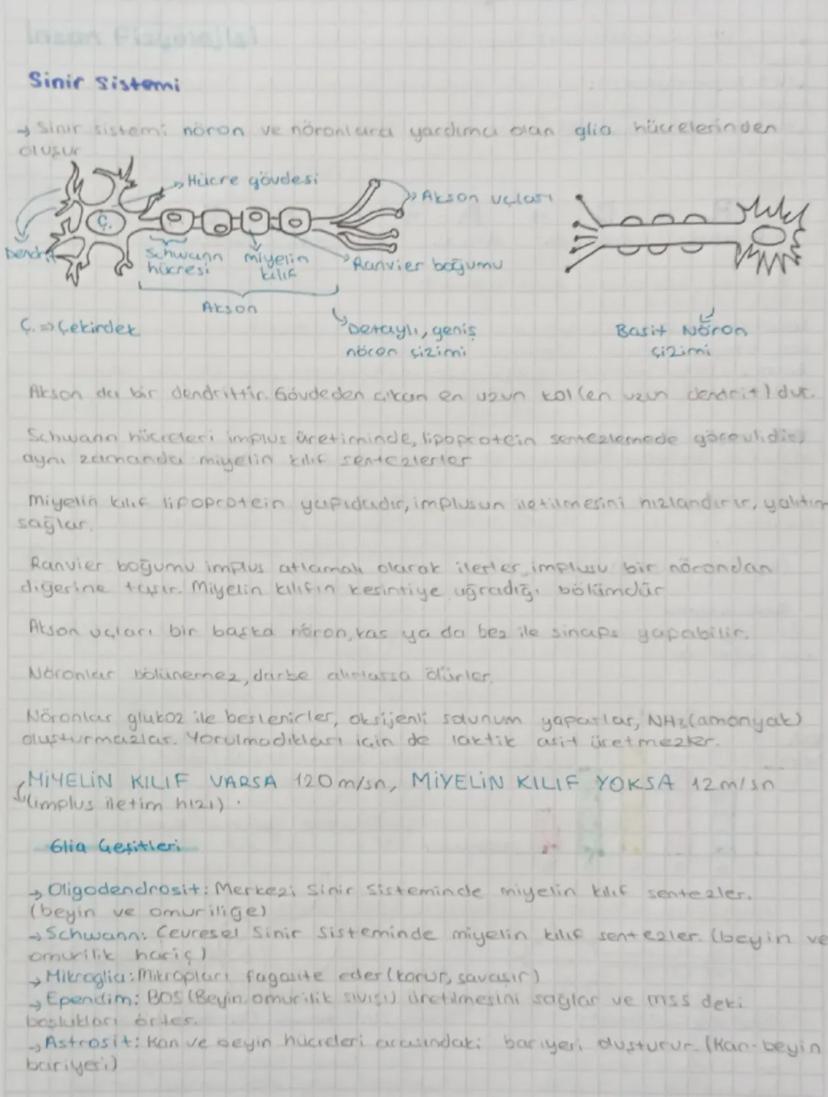 Sinir Sistemi
→ Sinir sistemi nöron ve nöronlara yardımcı olan glia hücrelerinden
oluşur
Hücre gövdesi
Akson uçları
Ç.
Dendrit
Schwann
hücresi
miyelin
kılıf
Ranvier boğumu
Akson
Ç. => Çekirdek
Detaylı, geniş
nöron çizimi
Basit Nöron
çizimi
Akson da bir dendrittir. Gövdeden çıkan en uzun kol (en uzun dendrit) dur.
Schwann hücreleri implus üretiminde, lipoprotein sentezlemede görevlidir,
aynı zamanda miyelin kılıf sentezlerler
Miyelin kılıf lipoprotein yapıdadır, implusun iletilmesini hızlandırır, yalıtım
sağlar.
Ranvier boğumu implus atlamalı olarak ilerler, implusu bir nörondan
diğerine taşır. Miyelin kılıfın kesintiye uğradığı bölümdür
Akson uçları bir başka nöron, kas ya da bez ile sinaps yapabilir.
Nöronlar bölünemez, darbe alırlarsa ölürler.
Nöronlar glukoz ile beslenirler, oksijenli solunum yaparlar, NH₂ (amonyak)
oluşturmazlar. Yorulmadıkları için de laktik asit üretmezler.
MİYELİN KILIF VARSA 120 m/sn, MİYELİN KILIF YOKSA 12 m/sn
(implus iletim hızı).
Glia Çeşitleri
→ Oligodendrosit: Merkezi Sinir Sisteminde miyelin kılıf sentezler.
(beyin ve omuriliğe)
→ Schwann: Çevresel Sinir Sisteminde miyelin kılıf sentezler (beyin ve
omurilik hariç)
→ Mikroglia: Mikropları fagosite eder (korur, savaşır)
→ Ependim: BOS (Beyin omurilik sıvısı) üretilmesini sağlar ve mss deki
boşlukları örter.
→ Astrosit: Kan ve beyin hücreleri arasındaki bariyeri oluşturur. (Kan-beyin
bariyeri)